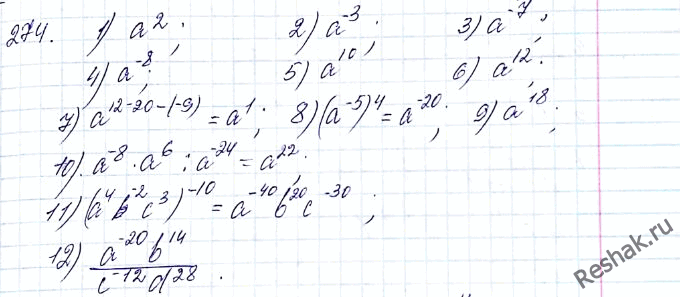 274. 1) a²; 2) a⁻³; 3) a⁻⁷;
4) a⁻⁸; 5) a¹⁰; 6) a¹²;
7) a¹²⁻²⁰⁻⁽⁻⁹⁾ = a¹; 8) (a⁻⁵)⁴ = a⁻²⁰; 9) a¹⁸;
10) a⁻⁸ · a⁶ : a⁻²⁴ = a²²;
11) (a⁴ b⁻² c³)⁻¹⁰ = a⁻⁴⁰ b²⁰ c⁻³⁰;
12) a⁻²⁰ b¹⁴ / c⁻¹² d²⁸.
Reshak.ru